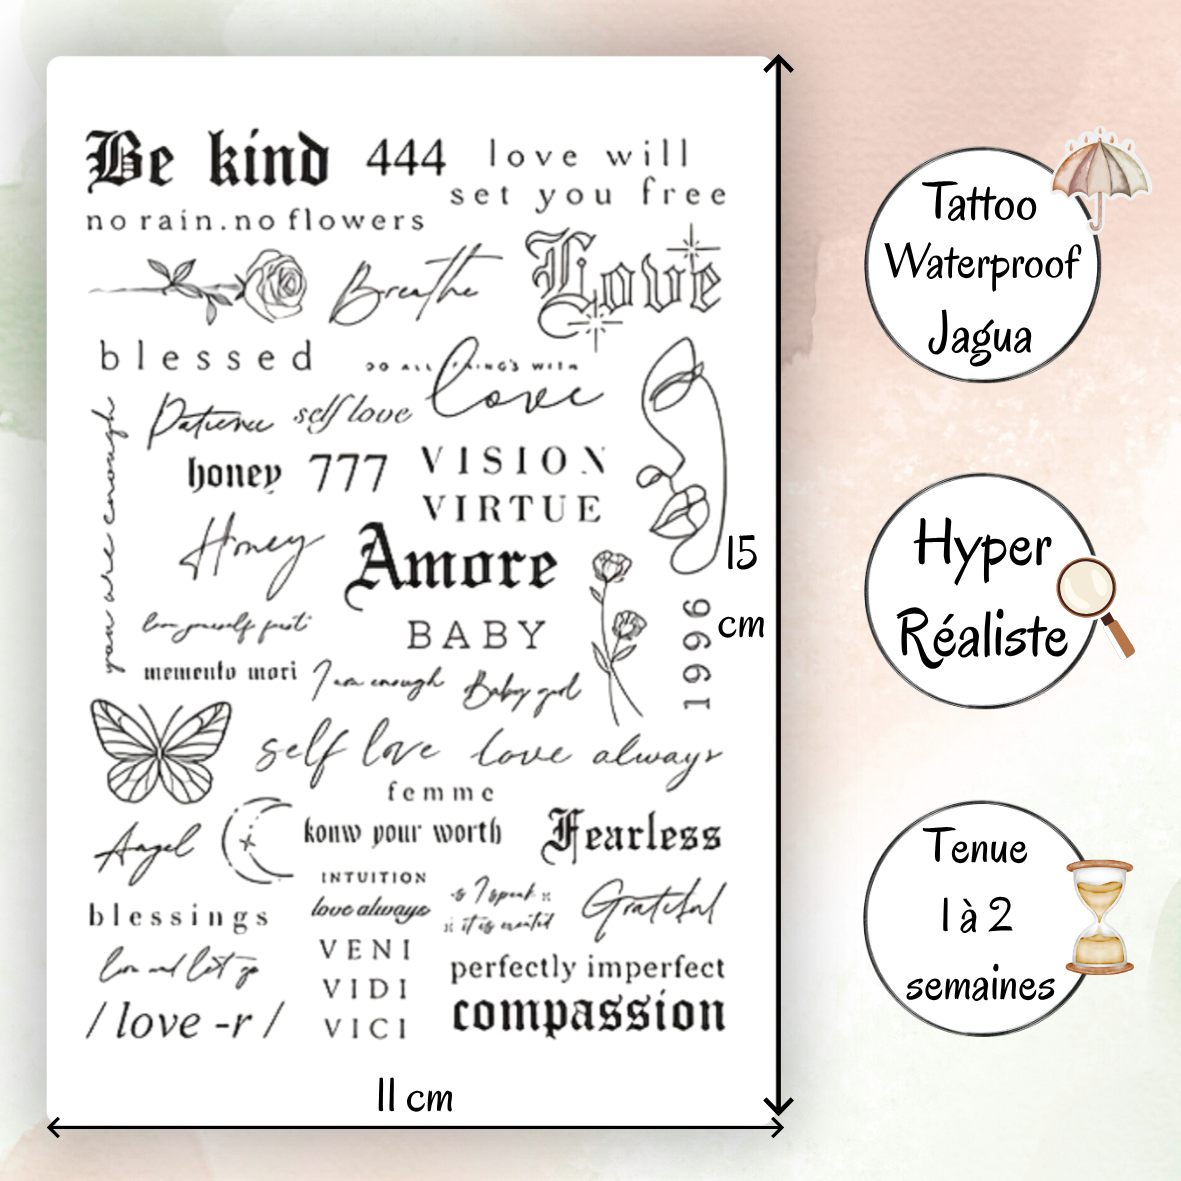 Be kind
444
love will
set you free
no rain.no flowers
Breathe
Love
blessed
DO ALL THING'S WITH
love
Patience
self love
you are enough
honey
777
VISION
VIRTUE
Honey
Amore
15
cm
love yourself first
BABY
1996
memento mori
I am enough
Baby girl
self love
love always
femme
Angel
konw your worth
Fearless
INTUITION
love always
I speak
it is created
Grateful
blessings
VENI
VIDI
VICI
perfectly imperfect
live and let go
/ love -r /
compassion
11 cm
Tattoo
Waterproof
Jagua
Hyper
Réaliste
Tenue
1 à 2
semaines